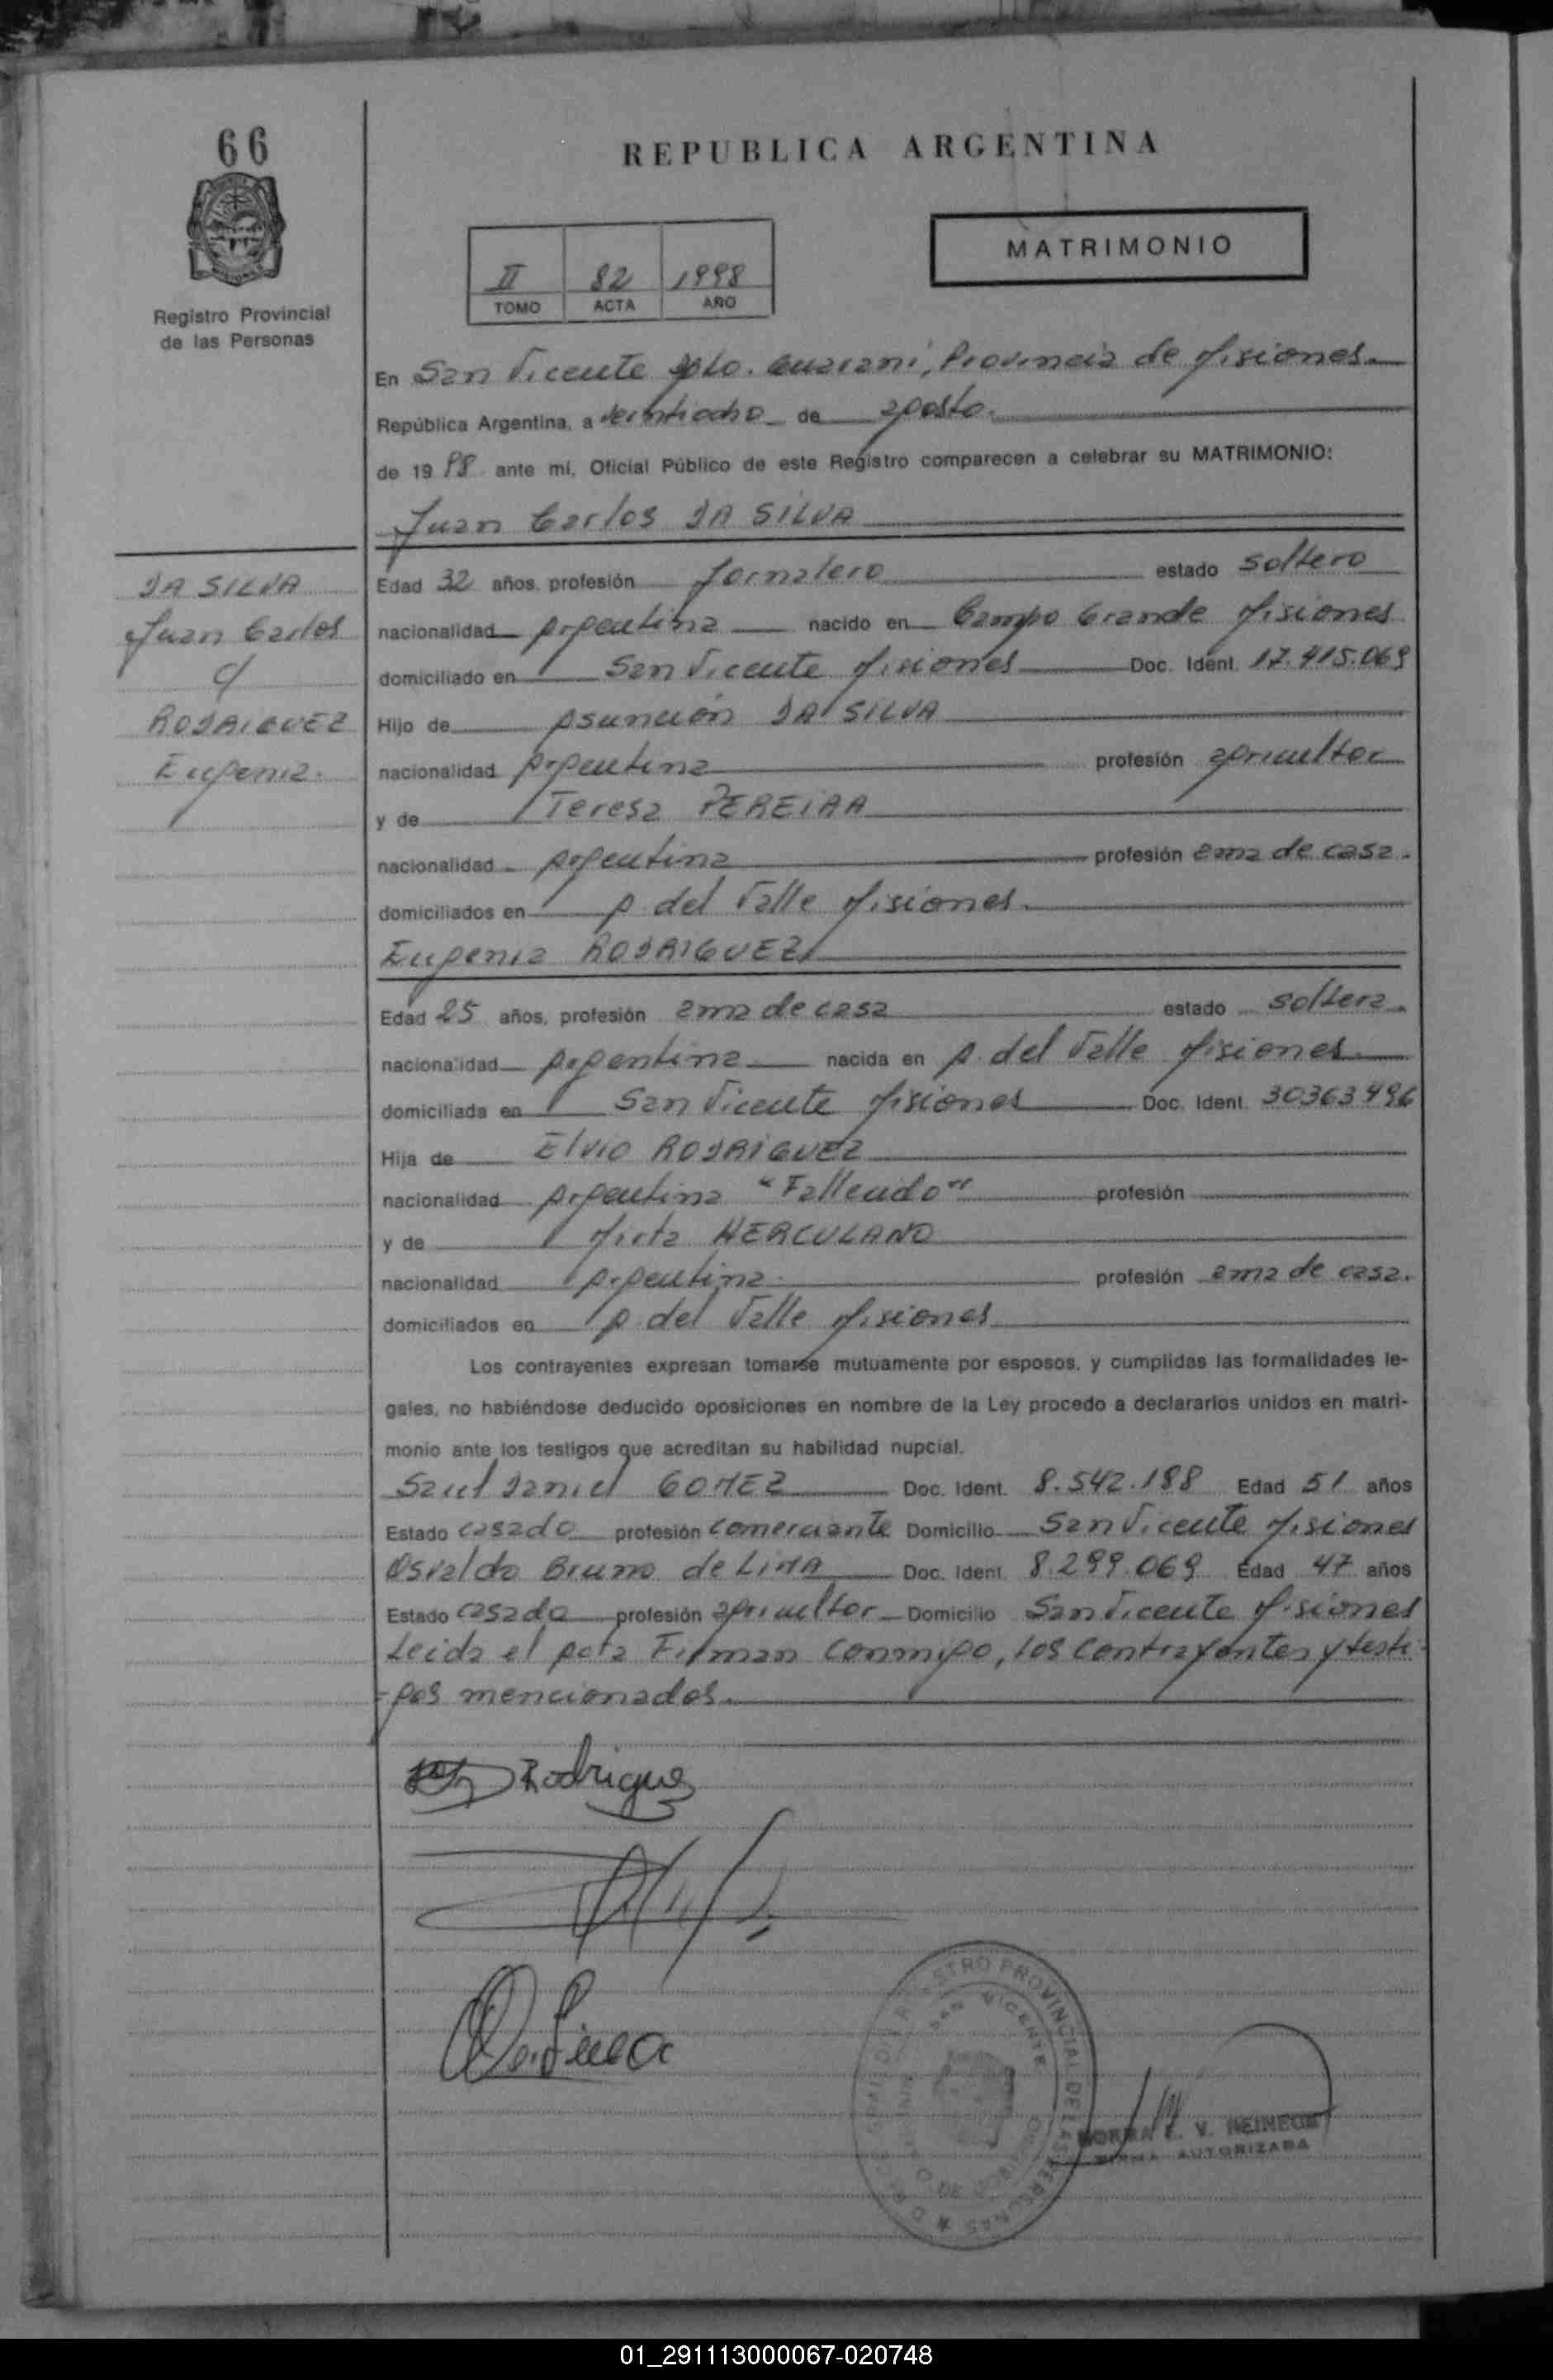 66
REPUBLICA ARGENTINA
MATRIMONIO
II 82 1998
TOMO ACTA AÑO
Registro Provincial
de las Personas
En San Vicente Dpto. Guarani, Provincia de Misiones
República Argentina, a veintiocho de agosto
de 1998 ante mí, Oficial Público de este Registro comparecen a celebrar su MATRIMONIO:
Juan Carlos DA SILVA
DA SILVA
Juan Carlos
c/
RODRIGUEZ
Eugenia.
Edad 32 años, profesión Jornalero estado soltero
nacionalidad Argentina nacido en Campo Grande Misiones
domiciliado en San Vicente Misiones Doc. Ident. 17.415.069
Hijo de Asunción DA SILVA
nacionalidad Argentina profesión agricultor
y de Teresa PEREIRA
nacionalidad Argentina profesión ama de casa.
domiciliados en A. del Valle Misiones
Eugenia RODRIGUEZ
Edad 25 años, profesión ama de casa estado soltera
nacionalidad Argentina nacida en A. del Valle Misiones
domiciliada en San Vicente Misiones Doc. Ident. 30363496
Hija de Elvio RODRIGUEZ
nacionalidad Argentina "Fallecido" profesión
y de Mirta HERCULANO
nacionalidad Argentina profesión ama de casa.
domiciliados en A. del Valle Misiones
Los contrayentes expresan tomarse mutuamente por esposos, y cumplidas las formalidades le-
gales, no habiéndose deducido oposiciones en nombre de la Ley procedo a declararlos unidos en matri-
monio ante los testigos que acreditan su habilidad nupcial.
Saul Daniel GOMEZ Doc. Ident. 8.542.188 Edad 51 años
Estado casado profesión comerciante Domicilio San Vicente Misiones
Osvaldo Bruno de LIMA Doc. Ident. 8.299.069 Edad 47 años
Estado casado profesión agricultor Domicilio San Vicente Misiones
Leida el Acta Firman conmigo, los contrayentes y testi-
-gos mencionados.
Rodriguez
REGISTRO PROVINCIAL DE LAS PERSONAS
SAN VICENTE
NORMA V.
FIRMA AUTORIZADA
01_291113000067-020748